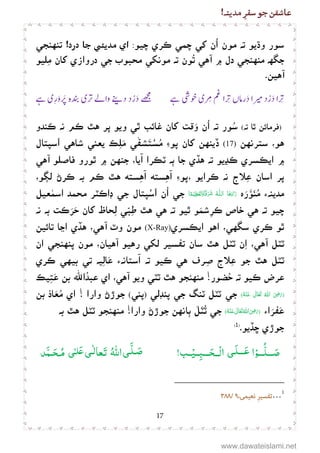 عاشقن جو سفرِ مدینہ!
سور وڌيو ته مون اُن کي چمي ڪري چيو: اي مديني جا درد! تنهنجي
جڳهہ منهنجي دل ۾ آهي تون ته مونکي محبوب جي دروازي کان مليو
آهين.
تِرا دَرد میرا دَرماں تِرا غم مِری خوشی ہے
مجھے دَرد دینے والے تری بندہ پروری ہے
(فرمائن ٿا ته) سُور ته اُن وقت کان غائب ٿي ويو پر هٿ ڪم نه ڪندو
هو، سترنهن (17) ڏينهن کان پوءِ مُسْتَشفٰي مَلِڪ يعني شاهي اسپتال
۾ ايڪسري ڪڍيو ته هڏي جا ٻه ٽڪرا آيا، جنهن ۾ ٿورو فاصلو آهي
پر اسان علاج نه ڪرايو ،پوءِ آهسته آهسته هٿ ڪم به ڪرڻ لڳو،
مدينه مُنَوَّرَه جي ان اسپتال جي ڊاڪٽر محمد اسمٰعيل
چيو ته هي خاص ڪرشمو ٿيو ته هي هٿ طبي لحاظ کان حرڪت به نه
ٿو ڪري سگهي، اهو ايڪسري (X-Ray) مون وٽ آهي، هڏي اڃا تائين
ٽٽل آهي، اِن ٽٽل هٿ سان تفسير لکي رهيو آهيان، مون پنهنجي ان
ٽٽل هٿ جو علاج صرف هي ڪيو ته آستانه عاليه تي بيهي ڪري
عرض ڪيو ته حضور! منهنجو هٿ ٽٽي ويو آهي، اي عبدالله بن عتيڪ
جي ٽٽل ٽنگ جي پنڊلي (پني) جوڙڻ وارا ! اي مُعاذ بن
عَفراء جي ٽُٽَل ٻانهن جوڙڻ وارا! منهنجو ٽٽل هٿ به
جوڙي ڇڏيو.
صَلُّوْا عَلَی الْحَبِیْب! صَلَّی اللهُ تَعَالٰی عَلٰی مُحَمَّد
1... تفسیرِ نعیمی، ۹/ ۳۸۸
www.dawateislami.net